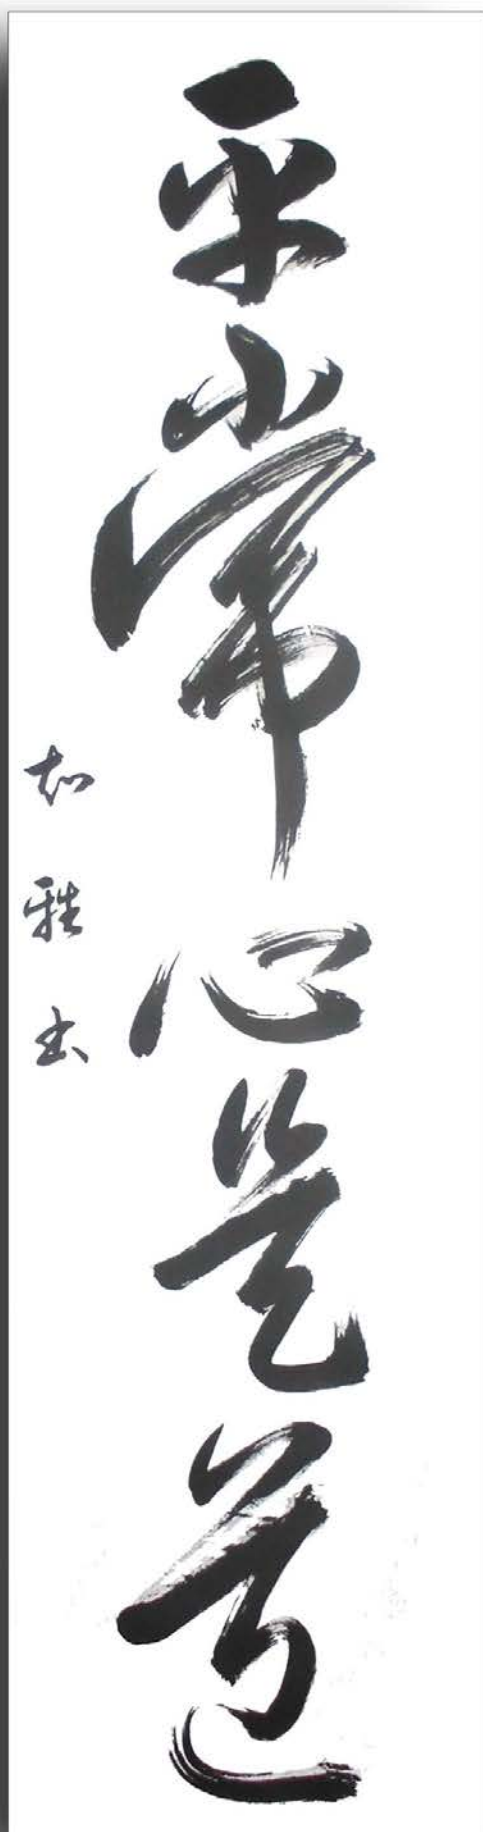 平常心是道
知雅书